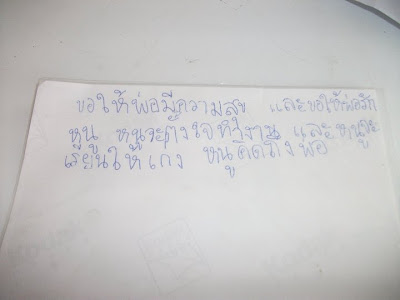 ขอให้พ่อมีความสุข และขอให้พ่อรัก
หนู หนูจะตั้งใจทำงาน และหนูจะ
เรียนให้เก่ง หนูคิดถึงพ่อ